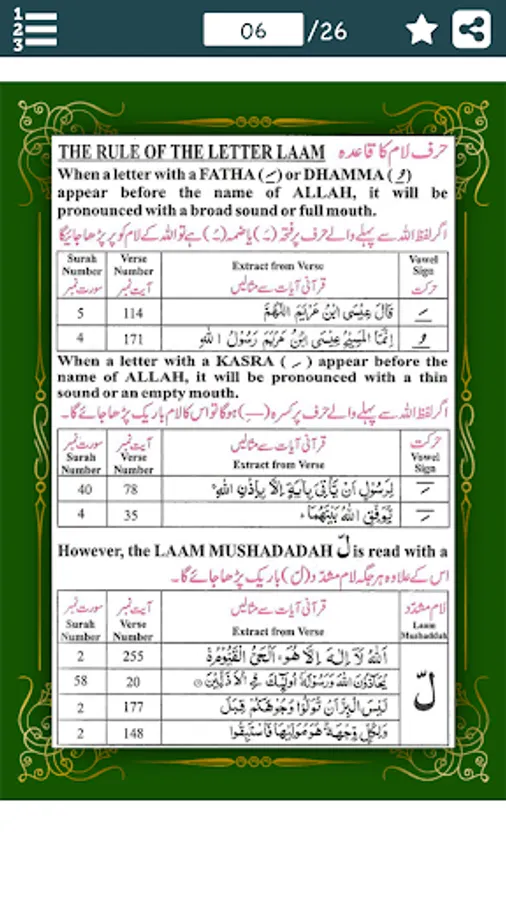 1
2
3
06 /26
THE RULE OF THE LETTER LAAM حرف لام کا قاعدہ
When a letter with a FATHA ( ـَ ) or DHAMMA ( ـُ )
appear before the name of ALLAH, it will be
pronounced with a broad sound or full mouth.
اگر لفظ اللہ سے پہلے والے حرف پر فتحہ ( ـَ ) یا ضمہ ( ـُ ) ہے تو اللہ کے لام کو پر پڑھا جائیگا
Surah Number Verse Number Extract from Verse Vowel Sign
سورت نمبر آیت نمبر قرآنی آیات سے مثالیں حرکت
5 114 قَالَ عِيْسَى ابْنُ مَرْيَمَ اللّٰهُمَّ ـَ
4 171 اِنَّمَا الْمَسِيْحُ عِيْسَى ابْنُ مَرْيَمَ رَسُوْلُ اللّٰهِ ـُ
When a letter with a KASRA ( ـِ ) appear before the
name of ALLAH, it will be pronounced with a thin
sound or an empty mouth.
اگر لفظ اللہ سے پہلے والے حرف پر کسرہ ( ـِ ) ہوگا تو اس کا لام باریک پڑھا جائے گا۔
سورت نمبر آیت نمبر قرآنی آیات سے مثالیں حرکت
Surah Number Verse Number Extract from Verse Vowel Sign
40 78 لِرَسُوْلٍ اَنْ يَّأْتِىَ بِاٰيَةٍ اِلَّا بِاِذْنِ اللّٰهِ ـِ
4 35 يُّوَفِّقِ اللّٰهُ بَيْنَهُمَا ـِ
However, the LAAM MUSHADADAH لّ is read with a
اس کے علاوہ ہر جگہ لام مشدد (لّ) باریک پڑھا جائے گا۔
سورت نمبر آیت نمبر قرآنی آیات سے مثالیں لام مشدد
Surah Number Verse Number Extract from Verse Laam Mushaddah
2 255 اَللّٰهُ لَآ اِلٰهَ اِلَّا هُوَ ۚ اَلْحَىُّ الْقَيُّوْمُ لّ
58 20 يُحَآدُّوْنَ اللّٰهَ وَرَسُوْلَهٗٓ اُولٰٓئِكَ فِى الْاَذَلِّيْنَ
2 177 لَيْسَ الْبِرَّ اَنْ تُوَلُّوْا وُجُوْهَكُمْ قِبَلَ
2 148 وَلِكُلٍّ وِّجْهَةٌ هُوَ مُوَلِّيْهَا فَاسْتَبِقُوا